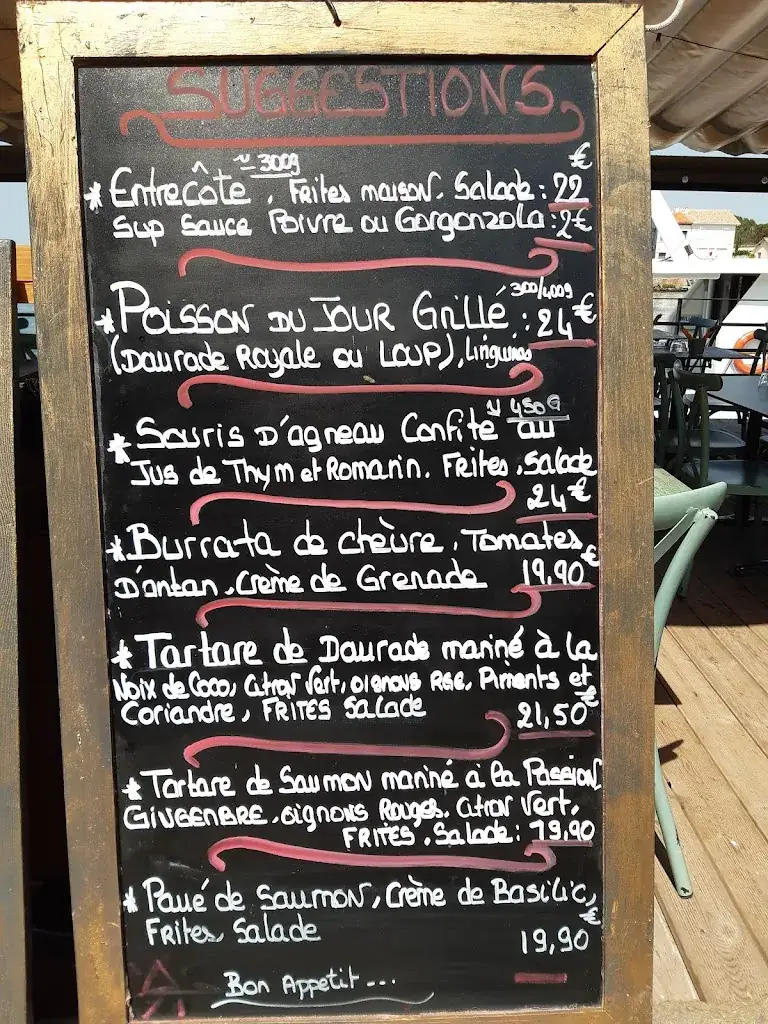 SUGGESTIONS
* Entrecôte ~ 300g, Frites maison, Salade : 22 €
Sup Sauce Poivre ou Gorgonzola : 2€
* Poisson du Jour Grillé 300/400g : 24 €
(Daurade Royale ou Loup), Linguines
* Souris d'agneau Confite ~ 450G au
Jus de Thym et Romarin. Frites, Salade
24 €
* Burrata de chèvre, Tomates
D'antan, Crème de Grenade 19,90 €
* Tartare de Daurade mariné à la
Noix de Coco, Citron Vert, oignons RGE, Piments et
Coriandre, FRITES Salade
21,50 €
* Tartare de Saumon mariné à la Passion
GINGENBRE, oignons Rouges, Citron Vert,
FRITES, Salade : 19,90
* Pavé de Saumon, Crème de Basilic,
Frites, Salade
19,90 €
Bon Appetit ...